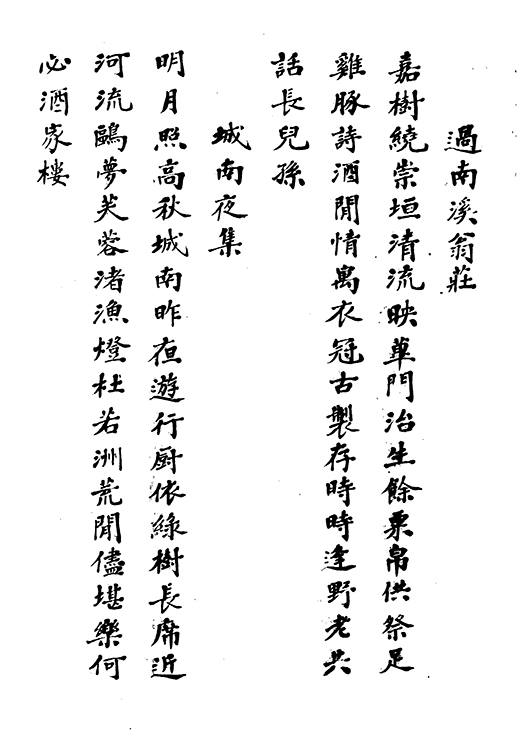 過南溪翁莊
嘉樹繞崇垣清流映蓽門治生餘粟帛供祭足
雞豚詩酒閒情寓衣冠古製存時時逢野老共
話長兒孫
城南夜集
明月照高秋城南昨夜遊行廚依綠樹長席近
河流鷗夢芙蓉渚漁燈杜若洲荒閒儘堪樂何
必酒家樓